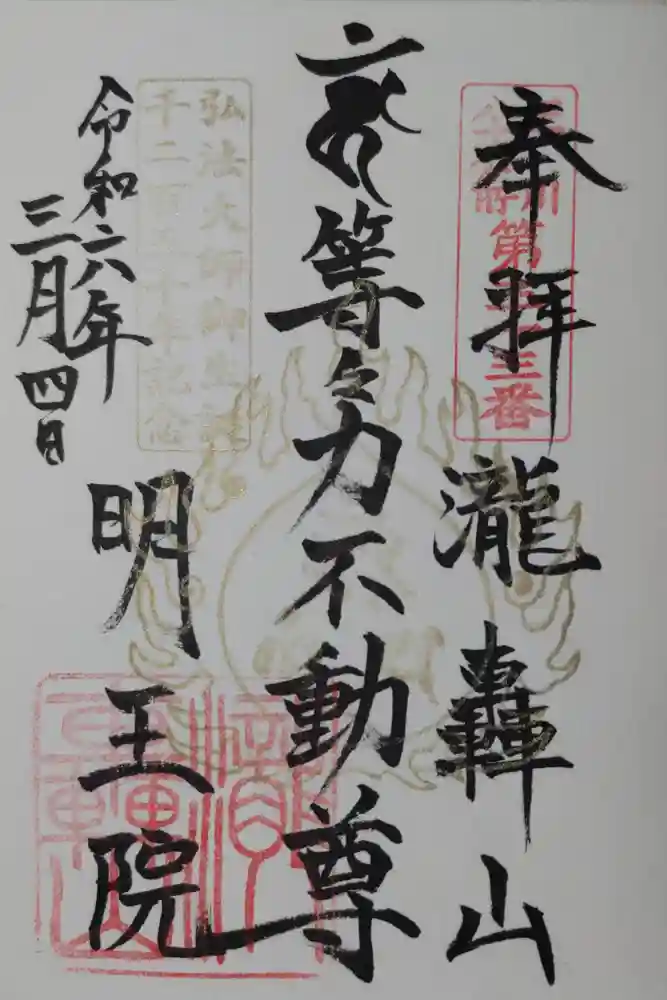 奉拝
瀧轟山
第三十三番
等々力不動尊
弘法大師御生誕
千二百五十年記念
令和六年
三月四日
明王院